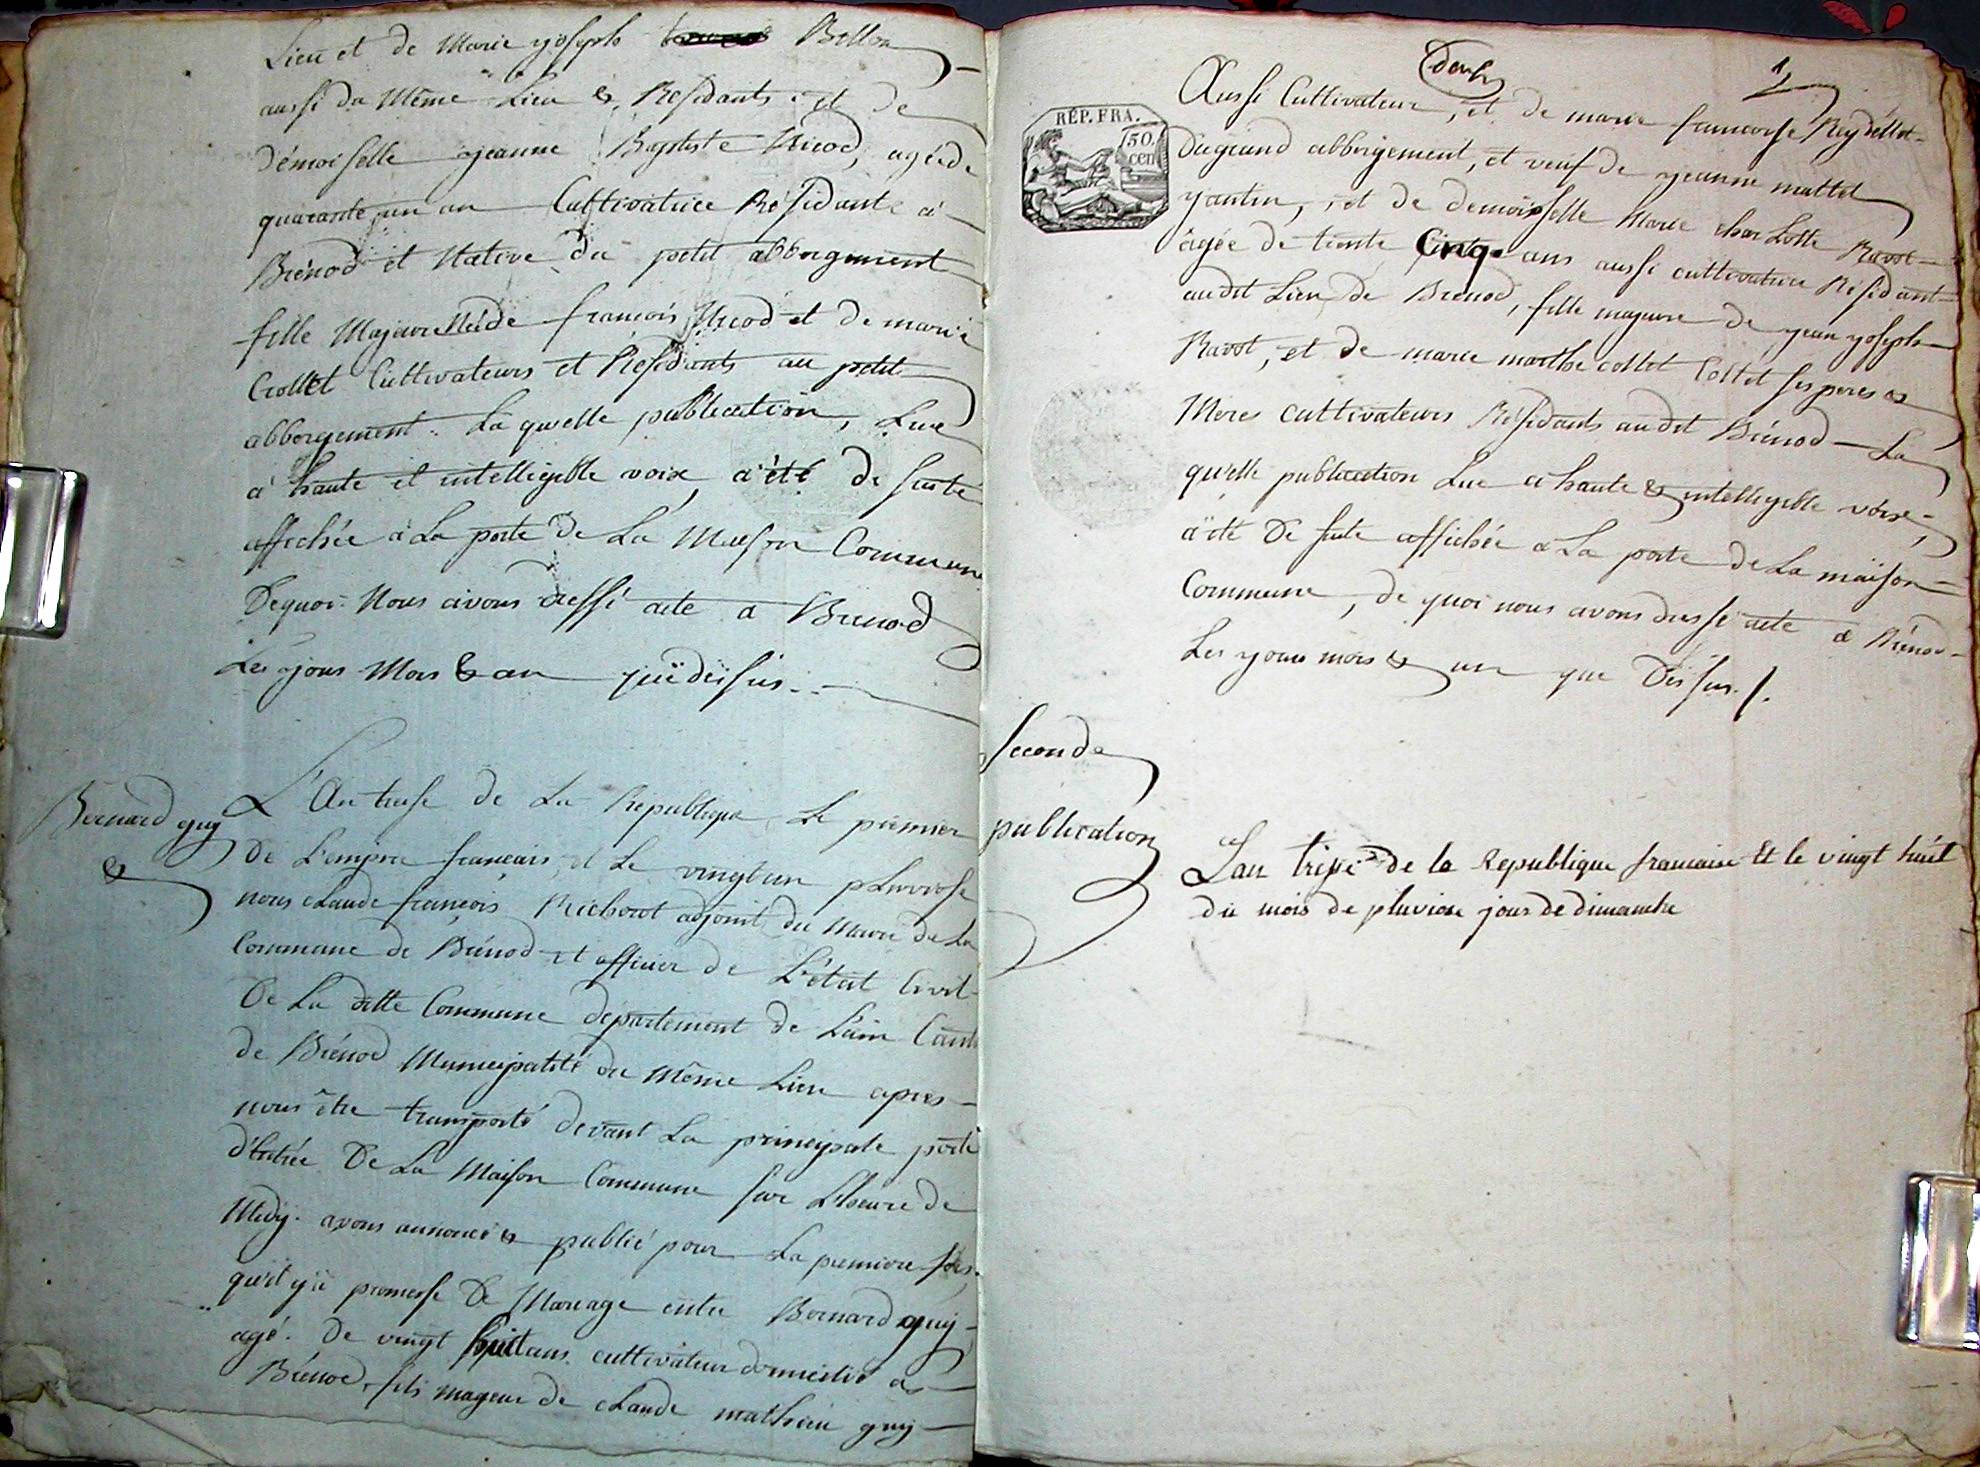 Lieu et de Marie yoseph Billon
aussi du Même Lieu & Résidants et de
Démoiselle yeanne Baptiste Nicod, agée de
quarante un an Cultivatrice Résidante à
Brénod et Native du petit abbergement
fille Majeure Née de francois Nicod et de marie
Crollet Cultivateurs et Résidants au petit
abbergement. La quelle publication, Lue
à haute et intelligible voix, a été de suite
affichée à La porte de La Maison Commune
Dequoi Nous avons dressé acte a Brenod
Les yours Mois & an que dessus.
Bernard guy
&
L'An treise de La Republique, Le premier
de L'empire français, et Le vingt un pluviose
nous claude françois Richerot adjoint du Maire de La
Commune de Brénod et officier de L'état Civil
De La ditte Commune département de L'ain Cant
de Brénod Municipalité du Même Lieu apres
nous être transporté devant La principale porte
d'Entrée De La Maison Commune sur L'heure de
Midy. avons annoncé & publié pour La premiere fois
qu'il y a promesse De Mariage entre Bernard guy
agé. De vingt huit ans cultivateur domicilié à
Brénod, fils mageur de claude mathieu guy
1
REP. FRA.
50.
cen
Aussi Cultivateur, et de marie francoise Reydellet
Du grand abbergement, et veuf de yeanne mattel
yantin, et de demoiselle Marie charLotte Ravot
âgée de trente Cinq ans aussi cultivatrice Résidant
audit Lieu de Brénod, fille majeure de yean yoseph
Ravot, et de marie marthe collet Collet ses peres &
Meres cultivateurs Résidants audit Brénod La
quelle publication Lue a haute & intelligible voix,
a été De suite affichée a La porte de La maison
Commune, de quoi nous avons dressé acte a Brénod
Les yours mois & an que Dessus.
seconde
publication
Lan trize de la Republique francaise Et le vingt huit
du mois de pluviose jour de dimanche